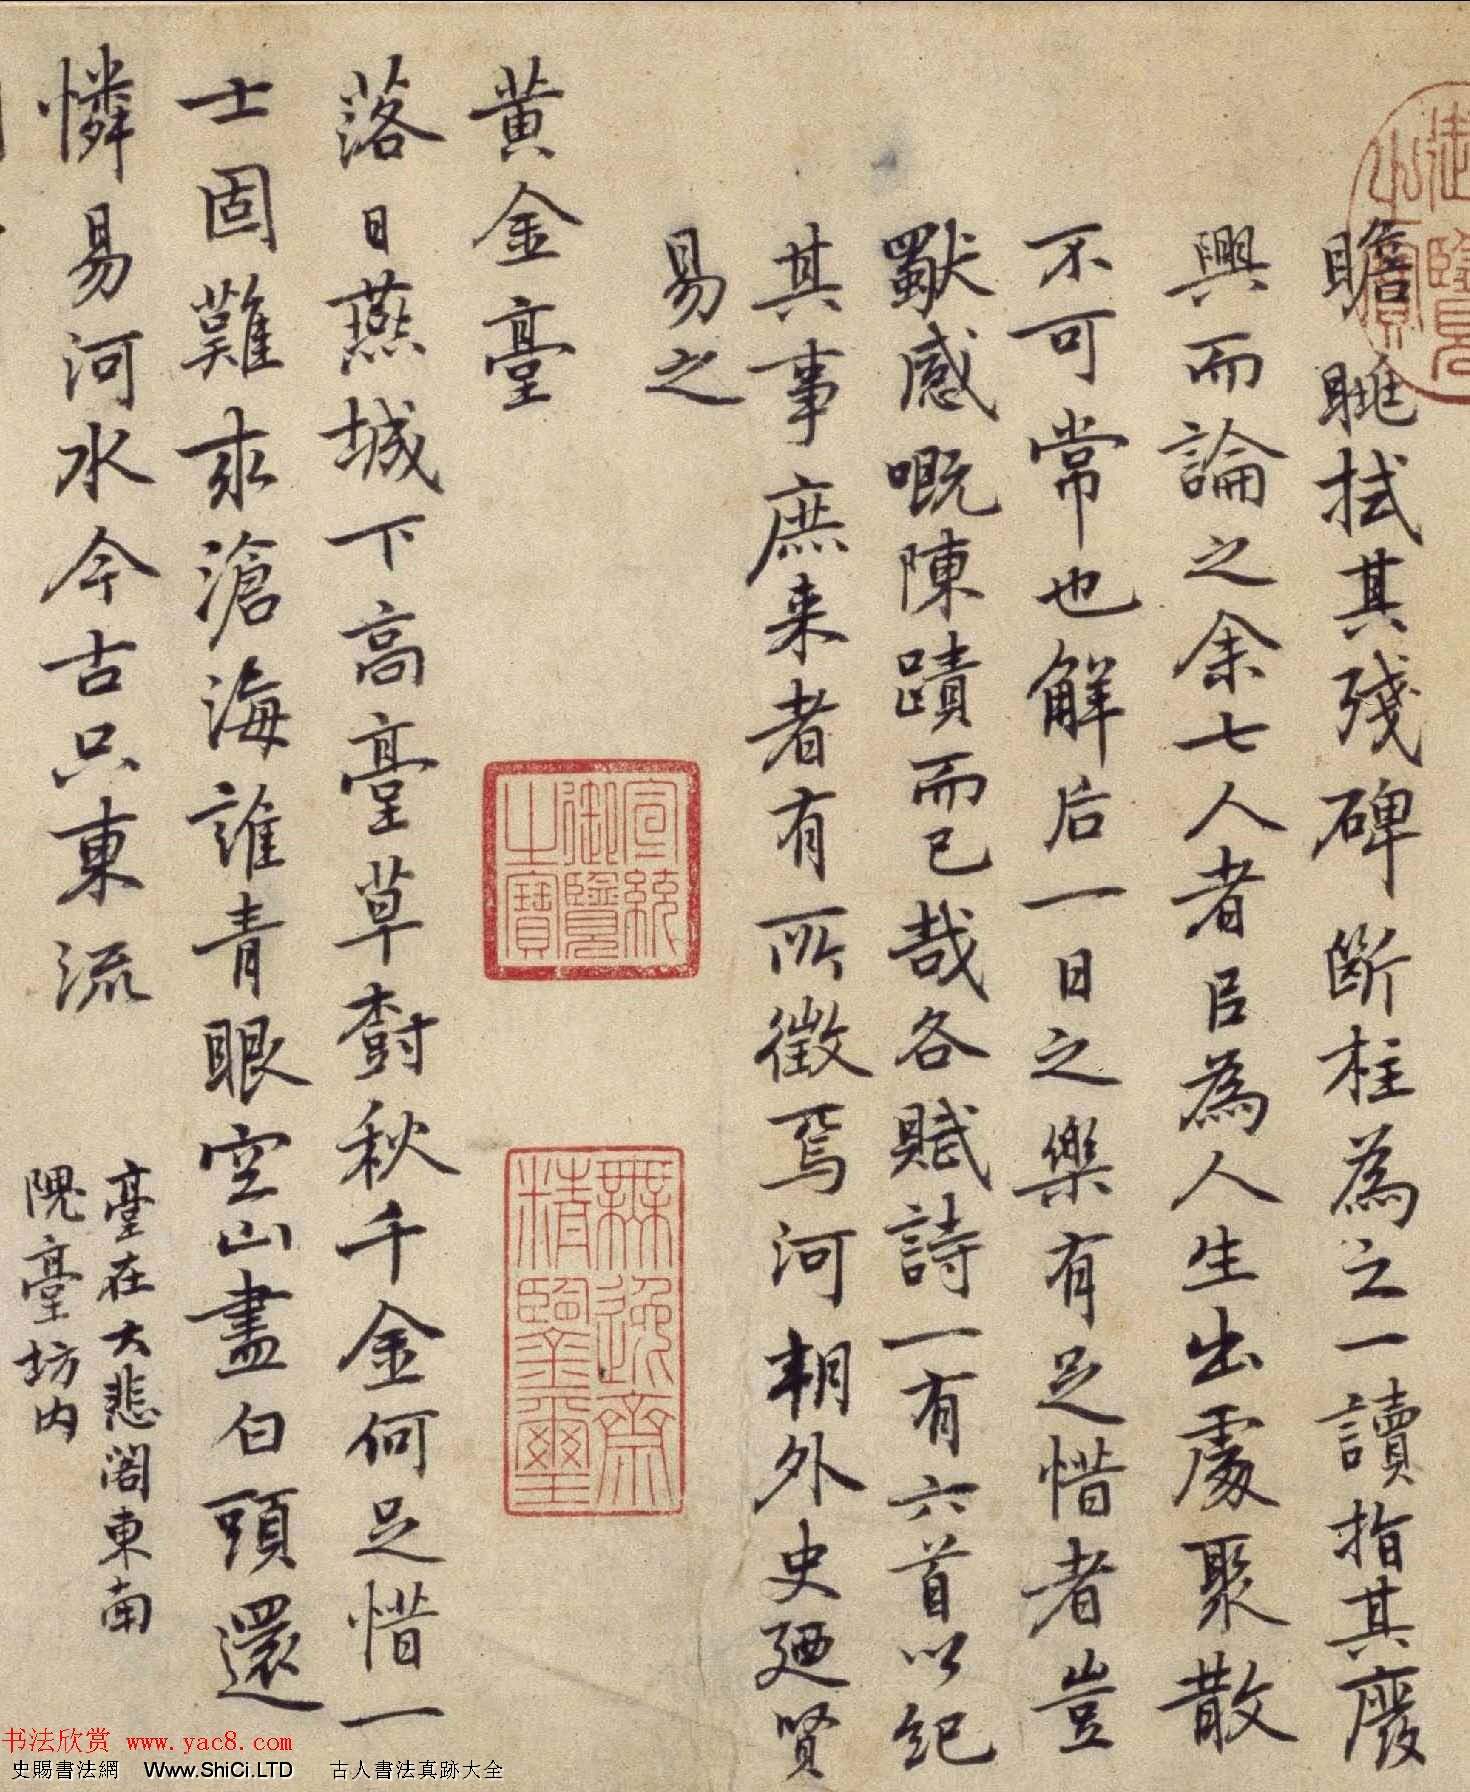 瞻眺拭其殘碑斷柱為之一讀指其廢
興而論之余七人者是為人生出處聚散
不可常也解后一日之樂有足惜者豈
獻感嘅陳蹟而已哉各賦詩一有六首以紀
其事庶来者有所徵焉河朔外史廼賢
易之
黄金臺
落日燕城下高臺草樹秋千金何足惜一
士固難求滄海誰青眼空山盡白頭還
憐易河水今古只東流
臺在大悲閣東南
隗臺坊内
宣統御覽之寶
無逸齋精鑒璽
书法欣赏 www.yac8.com
史賜書法網 Www.ShiCi.LTD 古人書法真跡大全